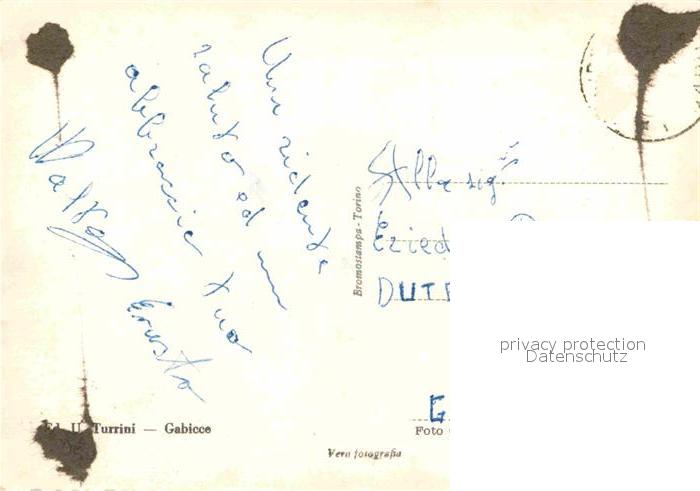 Un ridente
saluto ed un
abbraccio tuo
Ernesto
Bromostampa - Torino
Alla sig.
DUT
privacy protection
Datenschutz
Ed. U. Turrini — Gabicce
Foto
Vera fotografia